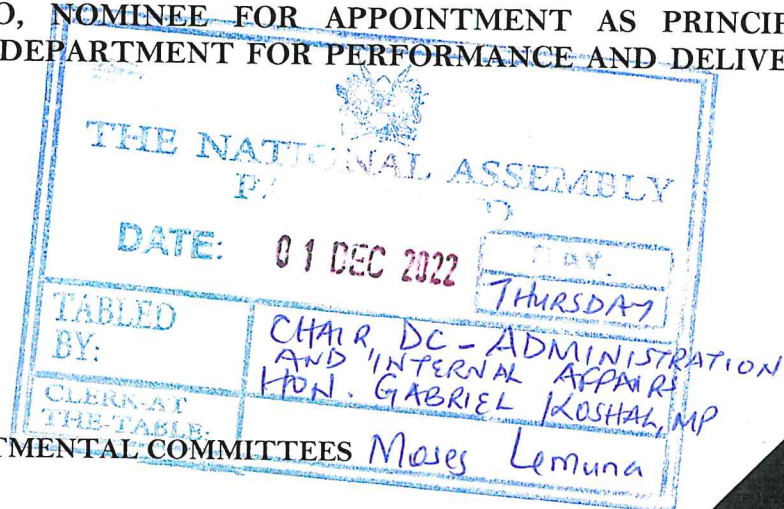 O, NOMINEE FOR APPOINTMENT AS PRINCIP
DEPARTMENT FOR PERFORMANCE AND DELIVE
THE NATIONAL ASSEMBLY
DATE: 01 DEC 2022 DAY.
THURSDAY
TABLED BY: CHAIR, DC - ADMINISTRATION
AND INTERNAL AFFAIRS
HON. GABRIEL KOSHAL, MP
CLERK-AT
THE-TABLE:
TMENTAL COMMITTEES Moses Lemuna